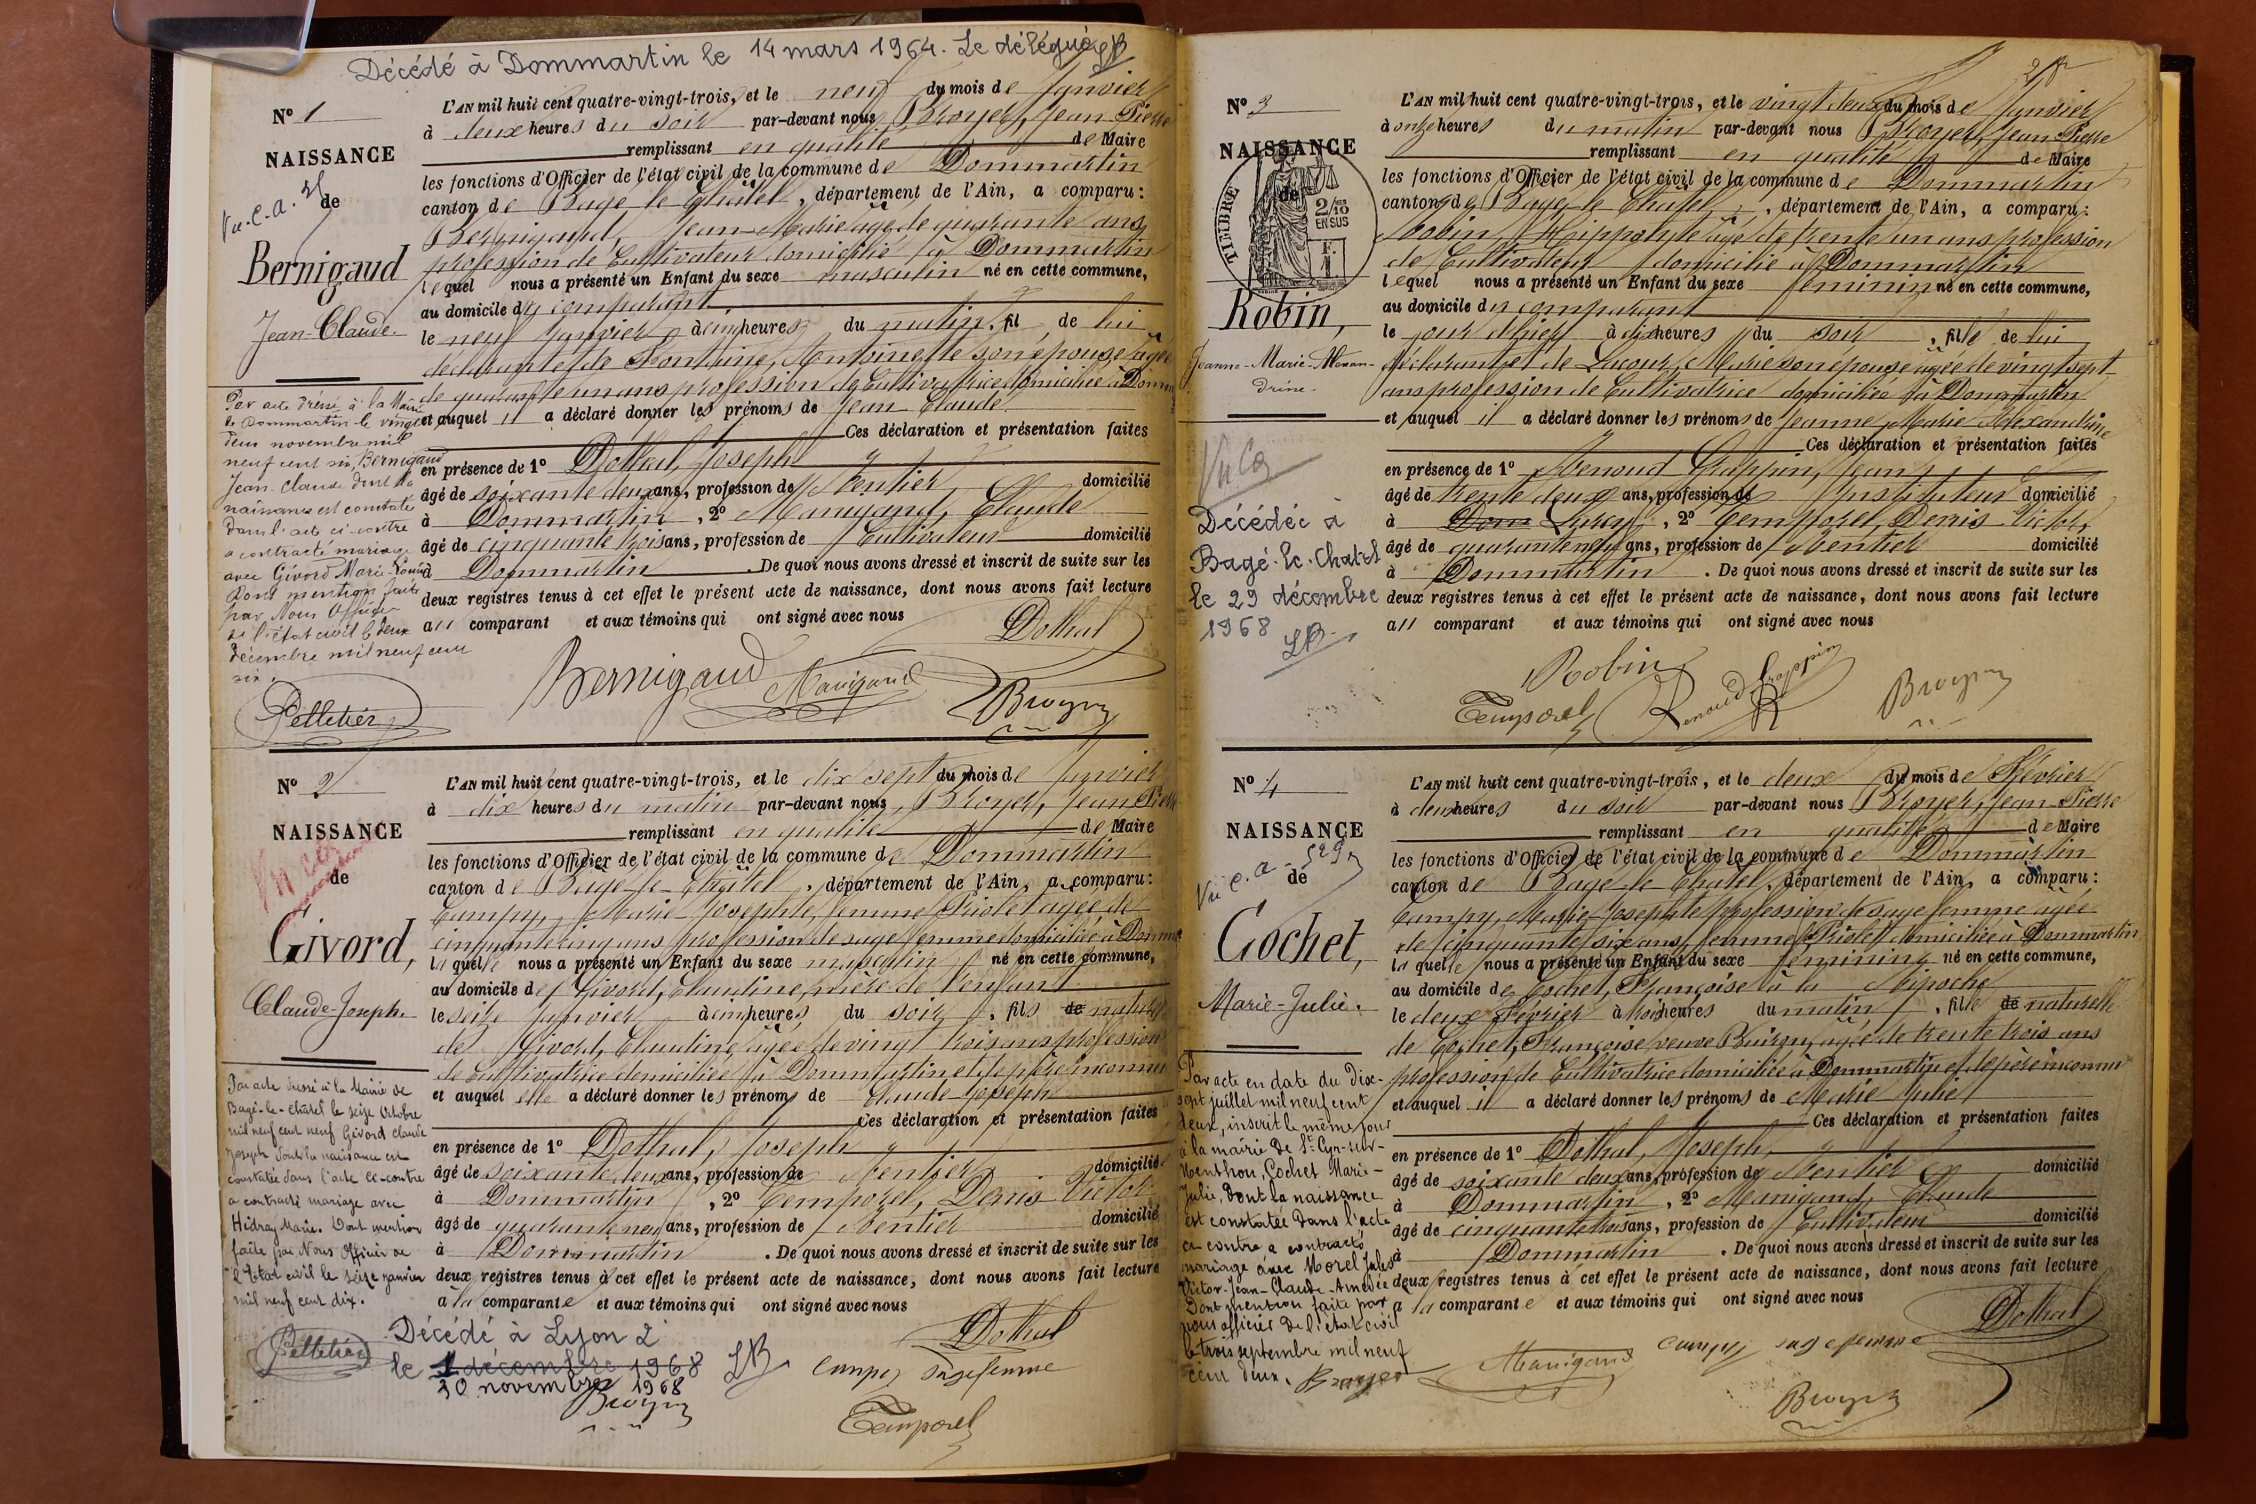 Décédé à Dommartin le 14 mars 1964. Le délégué
Nº 1
NAISSANCE
Vu. C. A.
de
Bernigaud
Jean-Claude.
Par acte dressé à la Mairie
de Dommartin le vingt
deux novembre mil
neuf cent six, Bernigaud
Jean-Claude dont la
naissance est constatée
dans l'acte ci-contre
a contracté mariage
avec Givord Marie-Louise
Dont mention faite
par Nous Officier
de l'état civil le deux
décembre mil neuf cent
six.
Pelletier
L'AN mil huit cent quatre-vingt-trois, et le neuf du mois de Janvier
à deux heures du soir par-devant nous Broyer, Jean Pierre
remplissant en qualité de Maire
les fonctions d'Officier de l'état civil de la commune de Dommartin
canton de Bagé-le-Châtel, département de l'Ain, a comparu:
Bernigaud, Jean-Marie âgé de quarante ans
profession de Cultivateur domicilié à Dommartin
lequel nous a présenté un Enfant du sexe masculin né en cette commune,
au domicile du comparant
le neuf Janvier à cinq heures du matin, fil de lui
déclarant et de Fontaine, Antoinette son épouse âgée
de quarante un ans profession de Cultivatrice domiciliée à Domm
et auquel il a déclaré donner les prénoms de Jean Claude
Ces déclaration et présentation faites
en présence de 1º Dothal, Joseph
âgé de soixante deux ans, profession de Rentier domicilié
à Dommartin, 2º Manigand, Claude
âgé de cinquante trois ans, profession de Cultivateur domicilié
à Dommartin. De quoi nous avons dressé et inscrit de suite sur les
deux registres tenus à cet effet le présent acte de naissance, dont nous avons fait lecture
au comparant et aux témoins qui ont signé avec nous
Dothal
Bernigaud Manigand Broyer
Nº 2
NAISSANCE
de
Givord,
Claude-Joseph.
Par acte dressé à la Mairie de
Bagé-le-Châtel le seize Octobre
mil neuf cent neuf Givord Claude
Joseph dont la naissance est
constatée dans l'acte ci-contre
a contracté mariage avec
Marie. Dont mention
faite par Nous Officier de
l'Etat civil le seize janvier
mil neuf cent dix.
Pelletier
L'AN mil huit cent quatre-vingt-trois, et le dix sept du mois de Janvier
à dix heures du matin par-devant nous Broyer, Jean Pierre
remplissant en qualité de Maire
les fonctions d'Officier de l'état civil de la commune de Dommartin
canton de Bagé-le-Châtel, département de l'Ain, a comparu:
Campy, Marie-Josephte, femme Priolet âgée de
cinquante cinq ans profession de sage femme domiciliée à Domm
laquelle nous a présenté un Enfant du sexe masculin né en cette commune,
au domicile de Givord, Claudine, mère de l'enfant
le seize Janvier à cinq heures du soir, fils de naturel
de Givord, Claudine, âgée de vingt trois ans profession
de Cultivatrice domiciliée à Dommartin et de père inconnu
et auquel elle a déclaré donner les prénoms de Claude Joseph
Ces déclaration et présentation faites
en présence de 1º Dothal, Joseph
âgé de soixante deux ans, profession de Rentier domicilié
à Dommartin, 2º Temporel, Denis Victor
âgé de quarante neuf ans, profession de Rentier domicilié
à Dommartin. De quoi nous avons dressé et inscrit de suite sur les
deux registres tenus à cet effet le présent acte de naissance, dont nous avons fait lecture
à la comparante et aux témoins qui ont signé avec nous
Décédé à Lyon 2
le 1 décembre 1968
30 novembre 1968
Dothal
Campy Sage femme
Broyer
Temporel
Nº 3
NAISSANCE
de
TIMBRE
2/10 EN SUS
Robin,
Jeanne-Marie-Alexan-
drine.
Vu Ca
Décédée à
Bagé-le-Chatel
le 29 décembre
1968
L'AN mil huit cent quatre-vingt-trois, et le vingt deux du mois de Janvier
à onze heures du matin par-devant nous Broyer, Jean Pierre
remplissant en qualité de Maire
les fonctions d'Officier de l'état civil de la commune de Dommartin
canton de Bagé-le-Châtel, département de l'Ain, a comparu:
Robin, Hippolyte âgé de trente un ans profession
de Cultivateur domicilié à Dommartin
lequel nous a présenté un Enfant du sexe féminin né en cette commune,
au domicile du comparant
le jour d'hier à dix heures du soir, fille de lui
déclarant et de Lacour, Marie son épouse âgée de vingt sept
ans profession de Cultivatrice domiciliée à Dommartin
et auquel il a déclaré donner les prénoms de Jeanne Marie Alexandrine
Ces déclaration et présentation faites
en présence de 1º Renoud Grappin, Jean
âgé de trente deux ans, profession de Instituteur domicilié
à Dom, 2º Temporel, Denis Victor,
âgé de quarante neuf ans, profession de Rentier domicilié
à Dommartin. De quoi nous avons dressé et inscrit de suite sur les
deux registres tenus à cet effet le présent acte de naissance, dont nous avons fait lecture
au comparant et aux témoins qui ont signé avec nous
Robin
Temporel Renoud Grappin Broyer
Nº 4
NAISSANCE
Vu C. A.
de
Cochet,
Marie-Julie.
Par acte en date du dix-
sept juillet mil neuf cent
deux, inscrit le même jour
à la mairie de St Cyr-sur-
Menthon, Cochet Marie-
Julie, dont la naissance
est constatée dans l'acte
ci-contre a contracté
mariage avec Morel Jules
Victor-Jean-Claude-Amédée
Dont mention faite par
nous officier de l'état civil
le trois septembre mil neuf
cent deux. Broyer
L'AN mil huit cent quatre-vingt-trois, et le deux du mois de Février
à deux heures du soir par-devant nous Broyer, Jean-Pierre
remplissant en qualité de Maire
les fonctions d'Officier de l'état civil de la commune de Dommartin
canton de Bagé-le-Châtel, département de l'Ain, a comparu:
Campy, Marie-Josephte profession de sage femme âgée
de cinquante six ans, femme Priolet domiciliée à Dommartin
laquelle nous a présenté un Enfant du sexe féminin né en cette commune,
au domicile de Cochet, Françoise à la
le deux Février à trois heures du matin, fille de naturelle
de Cochet, Françoise veuve âgée de trente trois ans
profession de Cultivatrice domiciliée à Dommartin et de père inconnu
et auquel il a déclaré donner les prénoms de Marie Julie
Ces déclaration et présentation faites
en présence de 1º Dothal, Joseph,
âgé de soixante deux ans, profession de Rentier domicilié
à Dommartin, 2º Manigand, Claude
âgé de cinquante trois ans, profession de Cultivateur domicilié
à Dommartin. De quoi nous avons dressé et inscrit de suite sur les
deux registres tenus à cet effet le présent acte de naissance, dont nous avons fait lecture
à la comparante et aux témoins qui ont signé avec nous
Dothal
Manigand Campy sage femme
Broyer